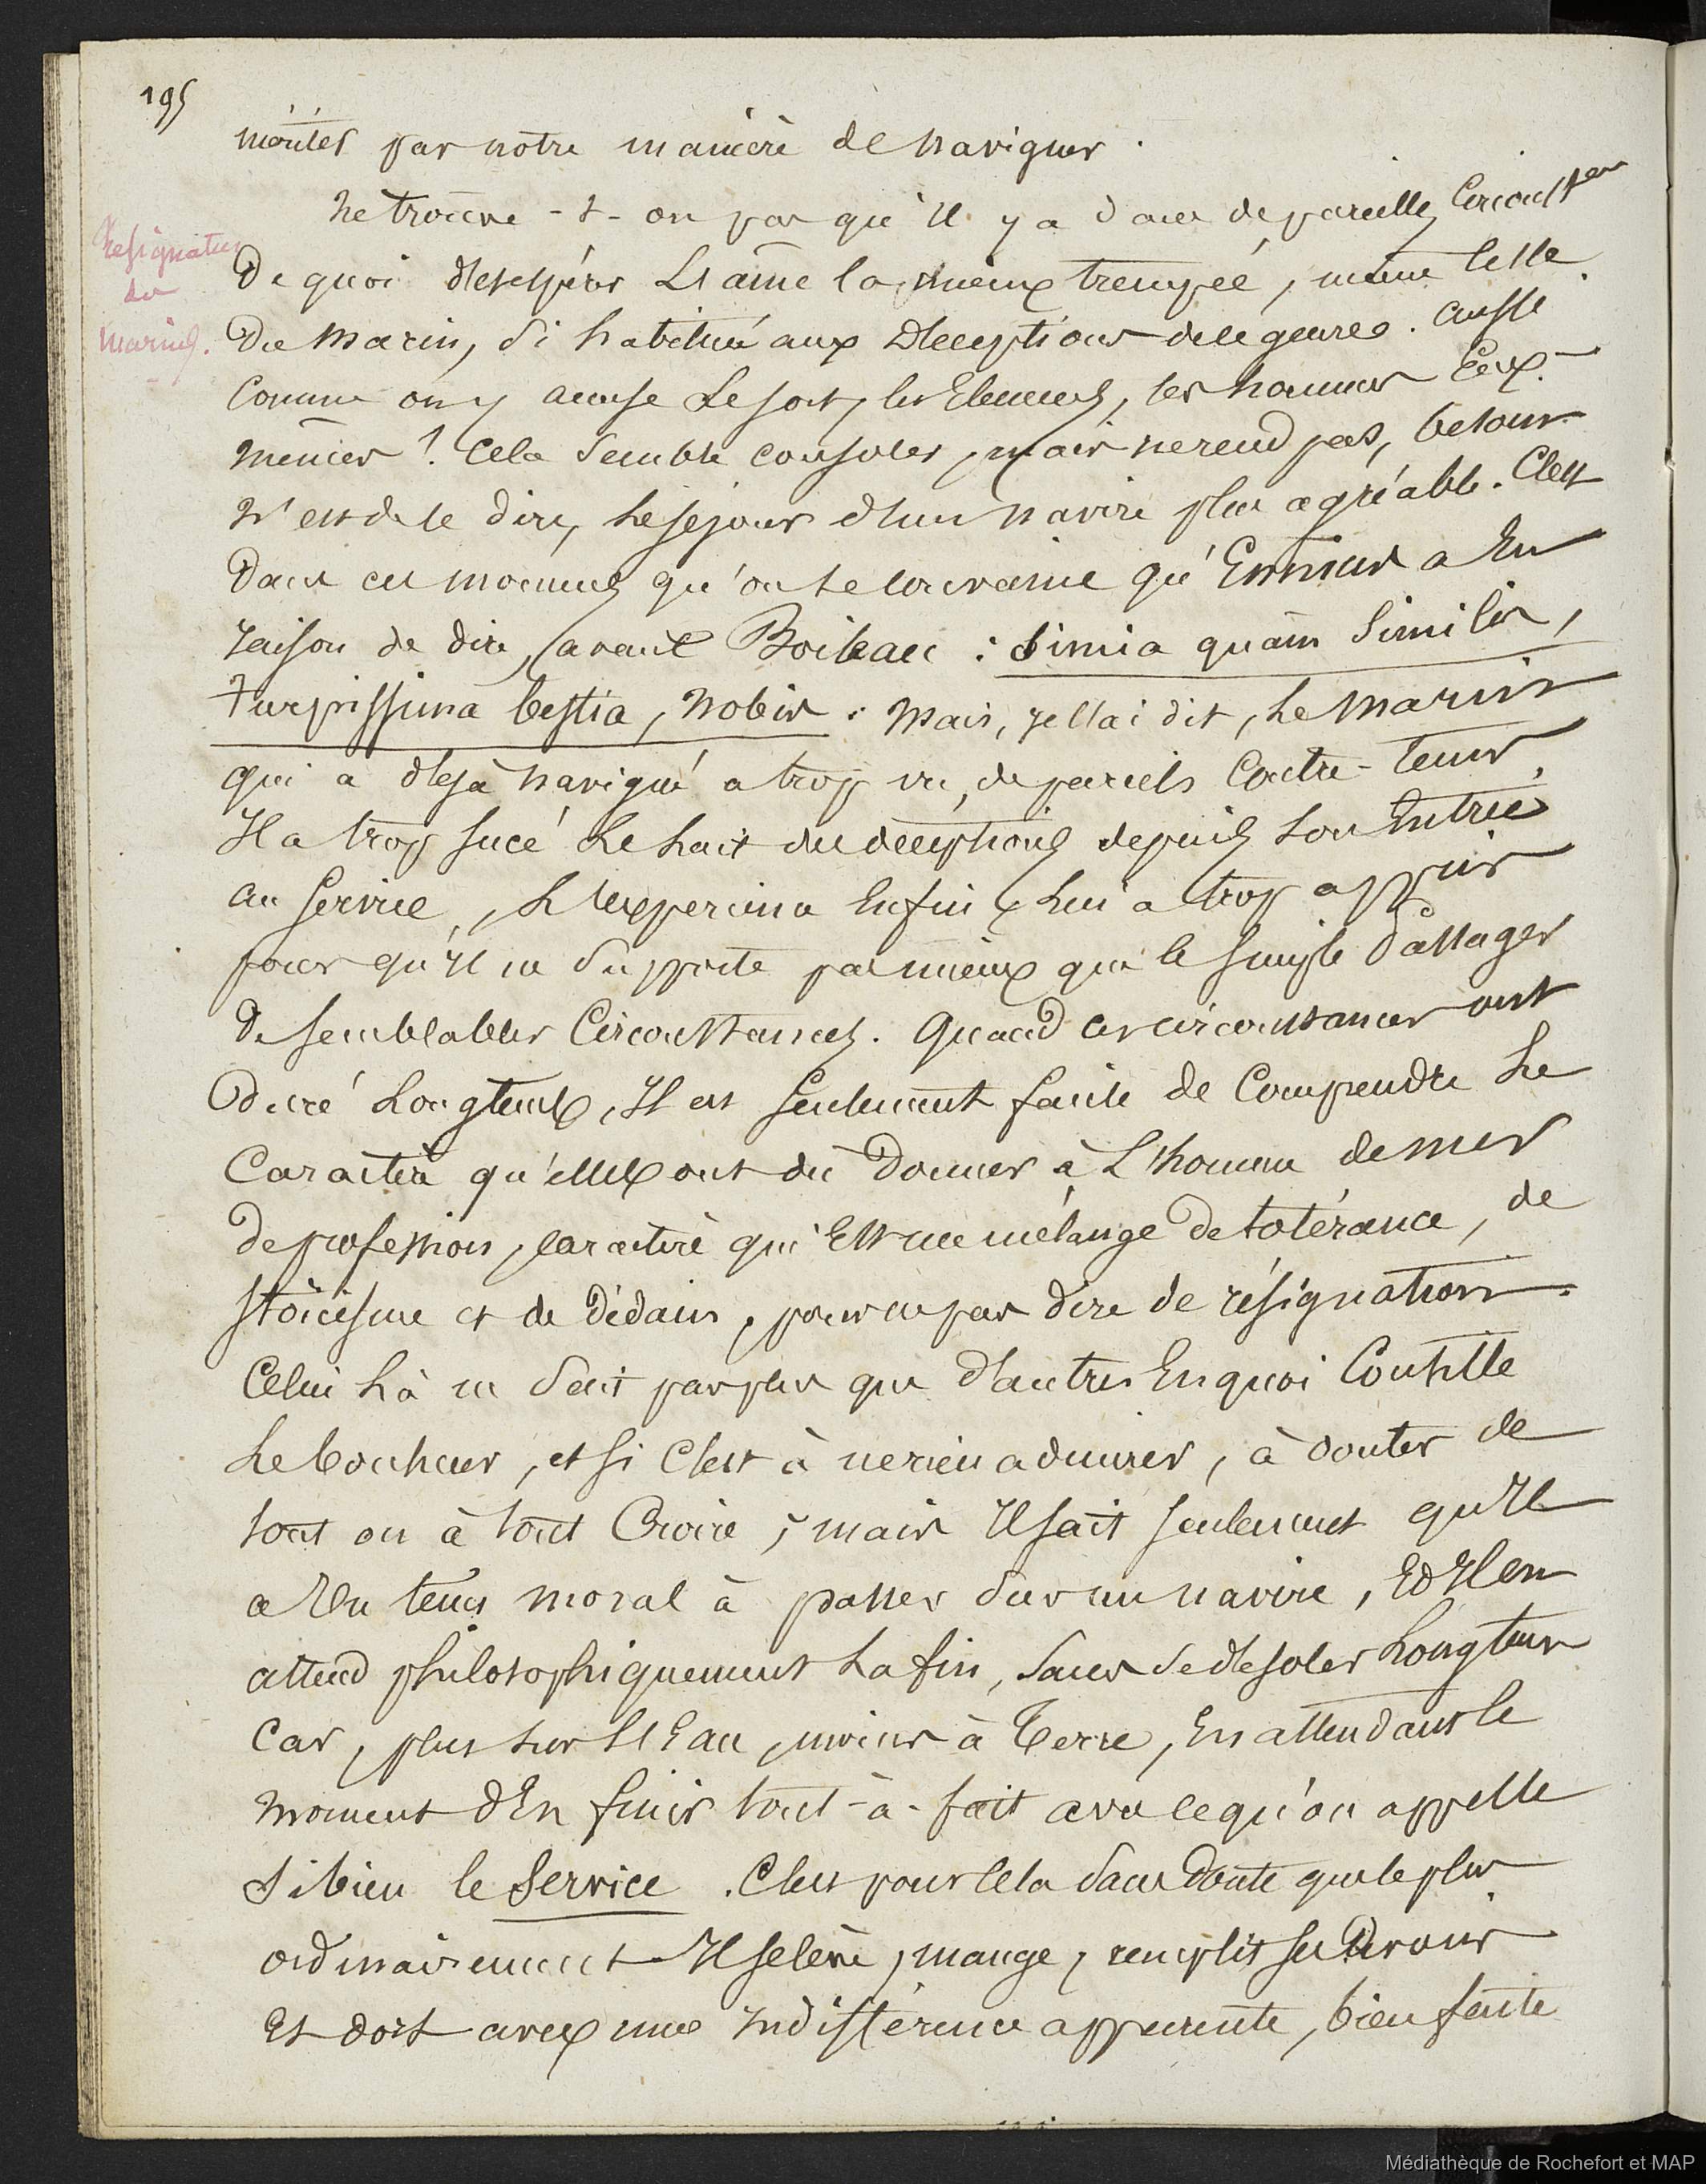 195
montés par notre manière de naviguer.
Ne trouve-t-on pas qu'il y a dans de pareilles Circonst.ces
Resignation
des
marins.
De quoi désespérer L'âme la mieux trempée, même celle
Du marin, si habitué aux déceptions de ce genre. aussi
Comme on y accuse Le sort, les Elemens, les hommes Eux-
mêmes! Cela semble consoler, mais ne rend pas, besoin
N'est de le dire, Le séjour d'un navire plus agréable. C'est
Dans ces momens qu'on se souvienne qu'Ennius a Eu
raison de dire, avant Boileau : Simia quam Similis,
turpissima bestia, nobis. Mais, je l'ai dit, Le marin
qui a déjà navigué a trop vu de pareils Contre-tems,
Il a trop sucé Le Lait des déceptions depuis Son Entrée
au Service, L'Experience Enfin Lui a trop appris
pour qu'il ne Supporte pas mieux que le simple Passager
de semblables Circonstances. Quand ces circonstances ont
Duré Longtems, Il est seulement facile de Comprendre Le
Caractère qu'elles ont dû Donner à L'homme de mer
de profession, caractère qui Est un mélange De tolérance, de
stoïcisme et de Dédain, pour ne pas dire de résignation.
Celui Là ne Sait pas plus que d'autres En quoi Consiste
Le bonheur, et si C'est à ne rien admirer, à douter de
tout ou à tout Croire ; mais Il sait seulement qu'Il
a Un tems moral à passer Sur un navire, Et Il en
attend philosophiquement La fin, Sans Se désoler Longtems
Car, plus sur L'Eau, moins à Terre, En attendant le
moment d'En finir tout-à-fait avec ce qu'on appelle
si bien le Service. C'est pour Cela Sans Doute que le plus
ordinairement Il se lève, mange, remplit ses Devoirs
Et dort avec une Indifférence apparente, bien faite
Médiathèque de Rochefort et MAP